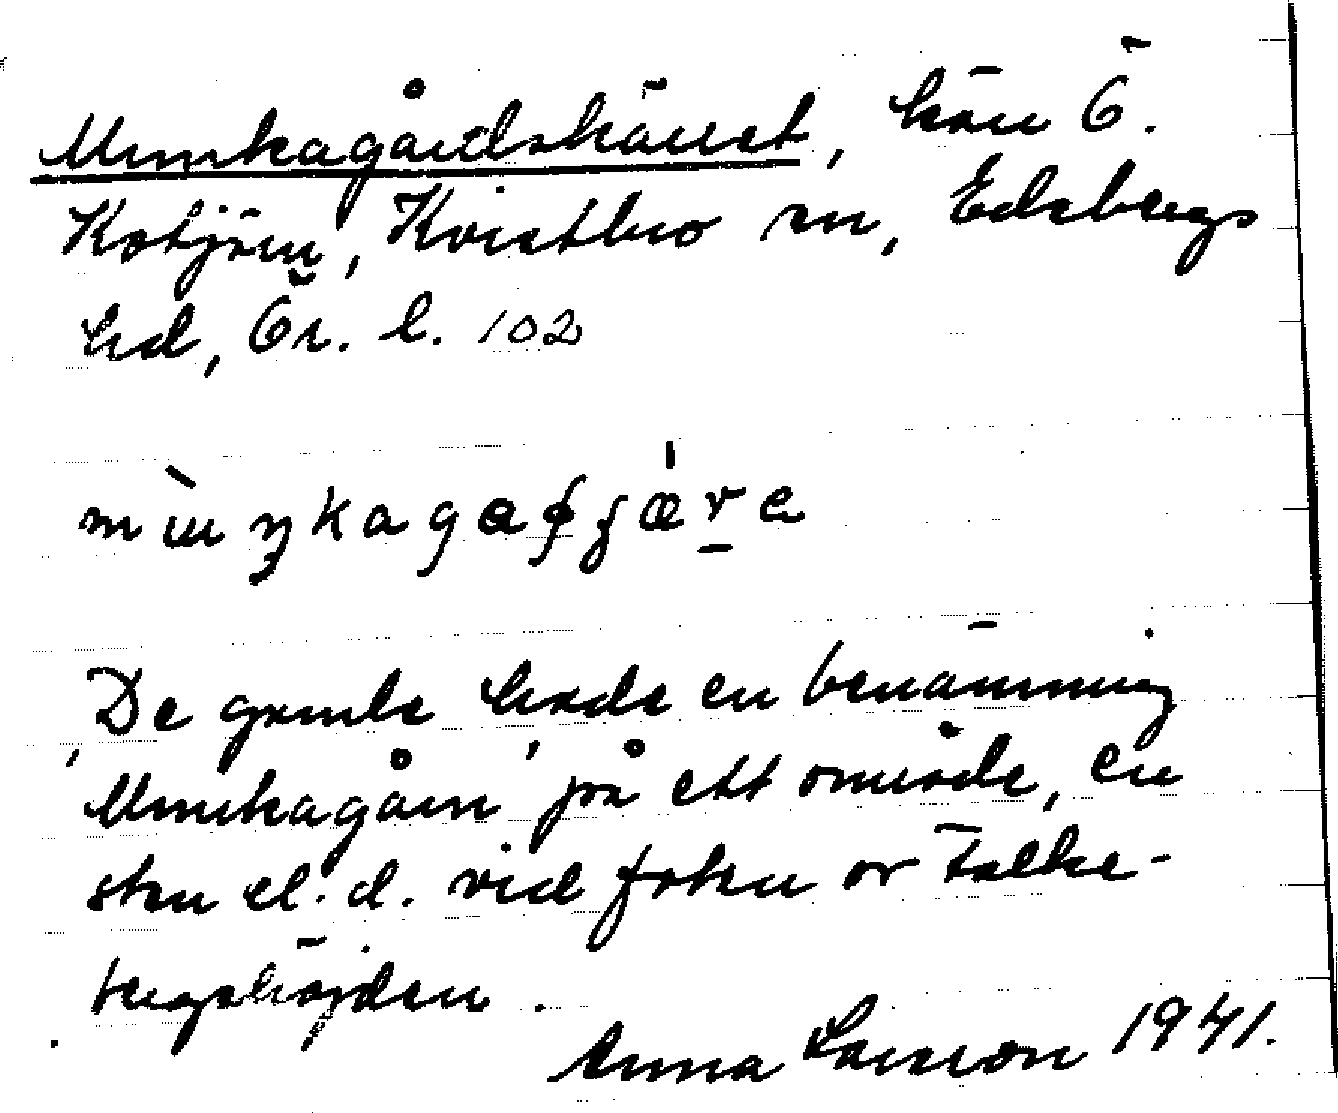 Munkagårdskärret, kärr Ö.
Kotjärn, Kvistbro sn, Edsbergs
hd, Ör. l. 102
De gamle hade en benämning
Munkagåln på ett område, en
sten el. d. vid foten av Falke-
bergshöjden.
Anna Larsson 1941.